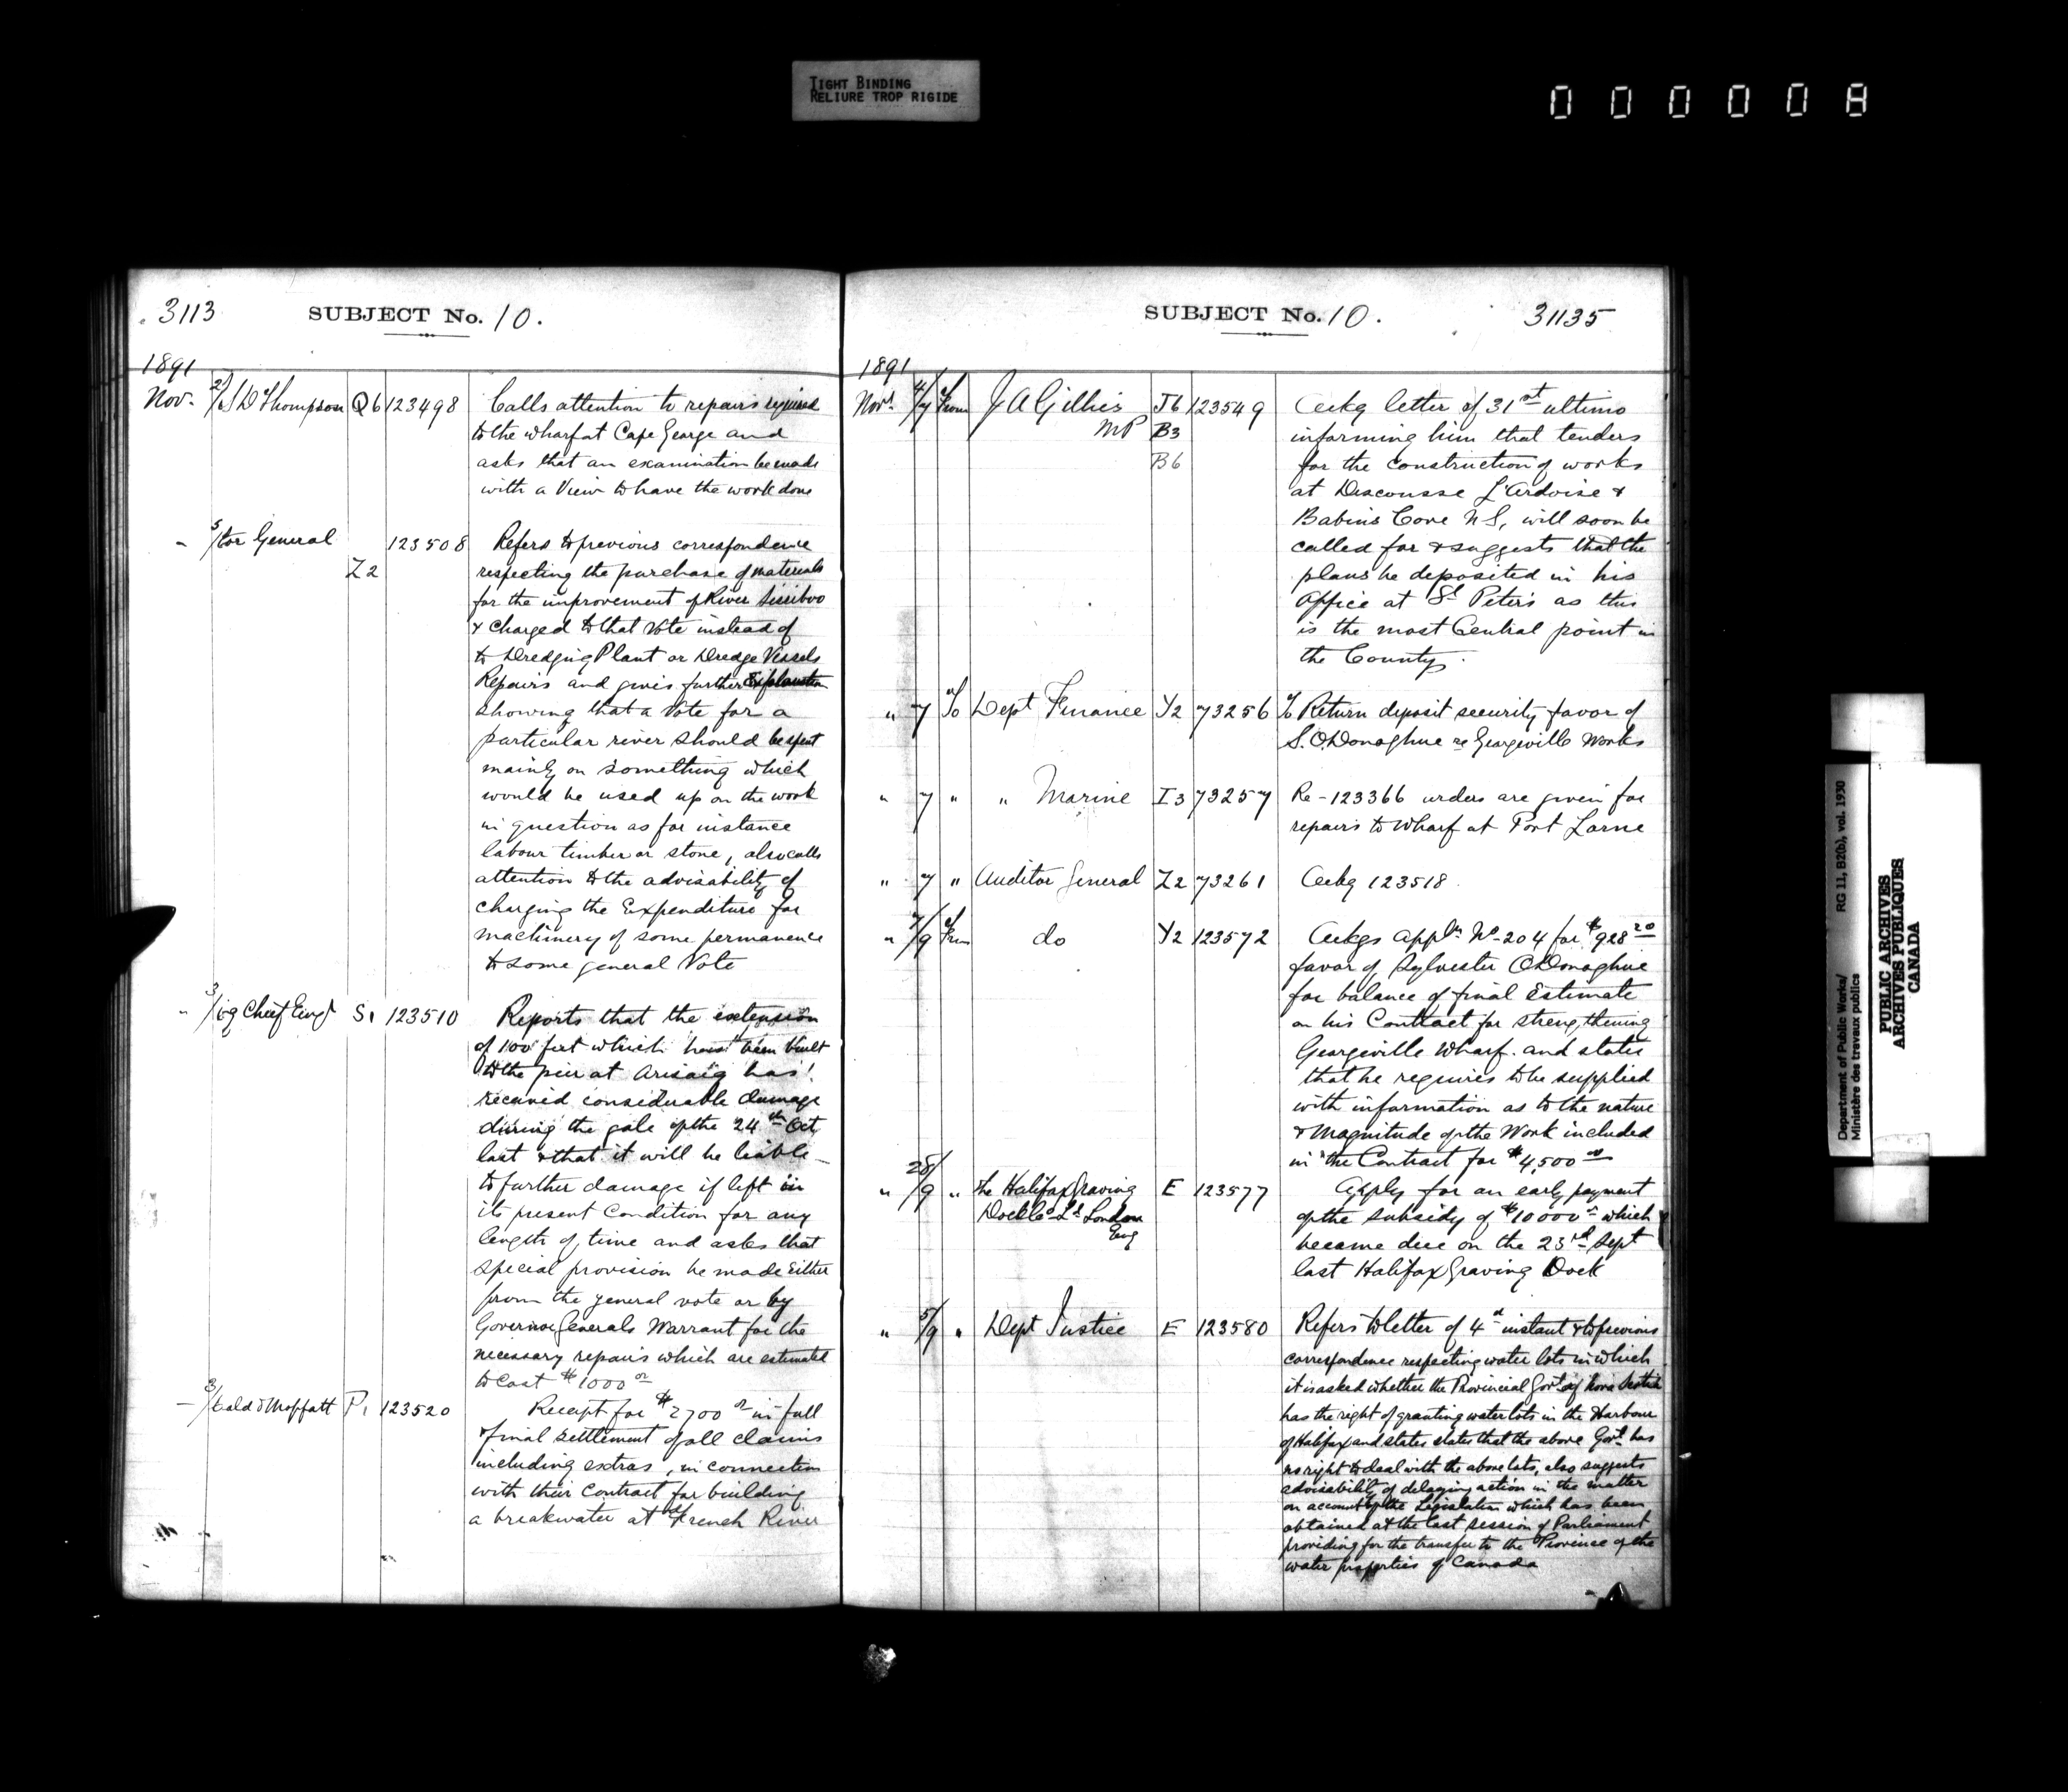 TIGHT BINDING
RELIURE TROP RIGIDE
000008
3113
SUBJECT No. 10.
1891
Nov. 2/ S D Thompson Q6 123498 Calls attention to repairs required
to the wharf at Cape George and
asks that an examination be made
with a view to have the work done
" 5/ tor General Z2 123508 Refers to previous correspondence
respecting the purchase of materials
for the improvement of River Sissiboo
& charged to that vote instead of
to Dredging Plant or Dredge Vessels
Repairs and gives further Explanation
showing that a Vote for a
particular river should be spent
mainly on something which
would be used up on the work
in question as for instance
labour timber or stone, also calls
attention to the advisability of
charging the Expenditure for
machinery of some permanence
to some general Vote
" 3/ i'g Chief Eng'r S1 123510 Reports that the extension
of 100 feet which has been built
to the pier at Arisaig has
received considerable damage
during the gale of the 24th Oct
last & that it will be liable
to further damage if left in
its present Condition for any
length of time and asks that
special provision be made Either
from the general vote or by
Governor Generals Warrant for the
necessary repairs which are estimated
to cost $1000 00
3/ ald & Moffatt P1 123520 Receipt for $2700 00 in full
& final settlement of all claims
including extras, in connection
with their contract for building
a breakwater at French River
SUBJECT No. 10. 31135
1891
Novr. 4/7 From J A Gillies MP J6 B3 B6 123549 Ackg letter of 31st ultimo
informing him that tenders
for the construction of works
at Descousse L'Ardoise &
Babins Cove N S, will soon be
called for & suggests that the
plans be deposited in his
Office at St Peters as this
is the most Central point in
the County.
" 7 To Dept Finance Y2 73256 To Return deposit security favor of
S. O'Donoghue re Georgeville Works
" 7 " " Marine I3 73257 Re - 123366 orders are given for
repairs to Wharf at Port Lorne
" 7 " Auditor General Z2 73261 Ackg 123518.
" 7/9 From do Y2 123572 Ackgs appln No 204 for $928 20
favor of Sylvester O'Donoghue
for balance of final Estimate
on his Contract for strengthening
Georgeville Wharf. and states
that he requires to be supplied
with information as to the nature
& Magnitude of the Work included
in the Contract for $4,500 00
" 28/9 " The Halifax Graving E 123577 Apply for an early payment
Dock Co Ld London
Eng
of the subsidy of $10000 00 which
became due on the 23rd Sept
last Halifax Graving Dock
" 5/9 " Dept Justice E 123580 Refers to letter of 4th instant & to previous
correspondence respecting water lots in which
it is asked whether the Provincial Govt of Nova Scotia
has the right of granting water lots in the Harbour
of Halifax and states states that the above Govt has
no right to deal with the above lots, also suggests
advisability of delaying action in the matter
on account of the Legislation which has been
obtained at the last session of Parliament
providing for the transfer to the Province of the
water properties of Canada
Department of Public Works/ RG 11, B2(b), vol. 1930
Ministère des travaux publics
PUBLIC ARCHIVES
ARCHIVES PUBLIQUES
CANADA